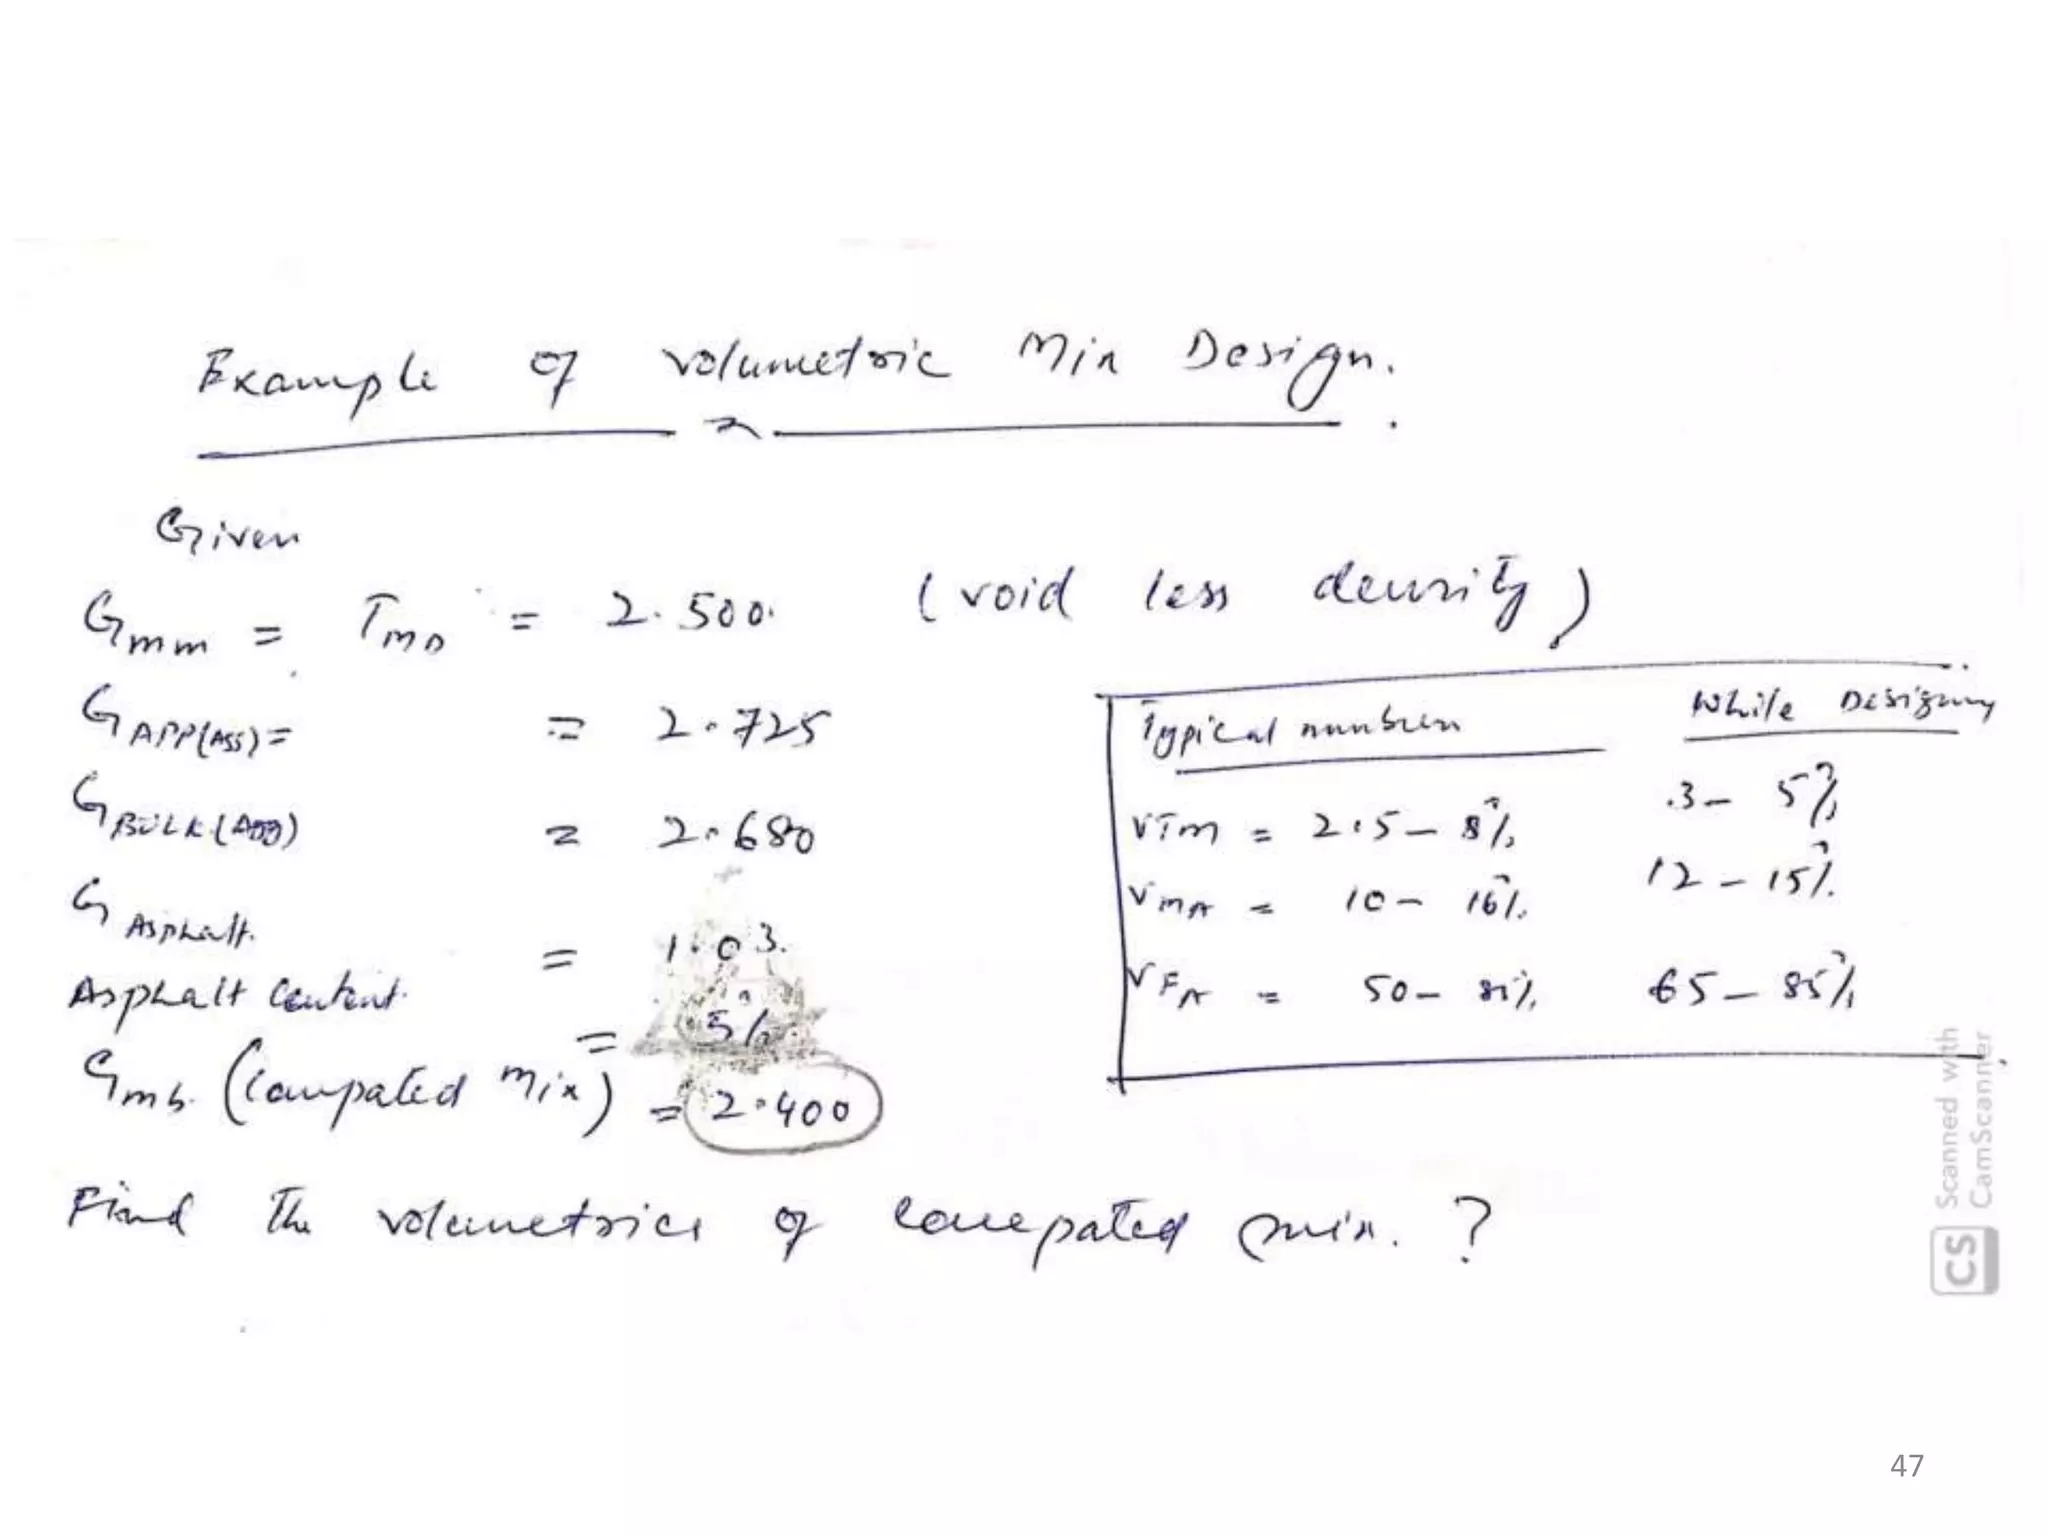 Example of volumetric Mix Design.
Given
Gmm = TMD = 2.500. (void less density)
GAPP(Agg) = = 2.725
GBULK(Agg) = 2.680
GAsphalt. = 1.03.
Asphalt Content. = 5%
Gmb. (Compated Mix) = 2.400
Typical numbers While Designing
VTM = 2.5 – 8% 3 – 5%
VMA = 10 – 16% 12 – 15%
VFA = 50 – 85% 65 – 85%
Find The volumetrics of compated mix. ?
Scanned with
CamScanner
CS
47